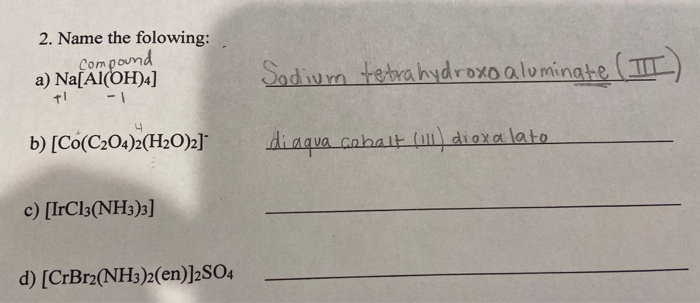 2. Name the folowing:
compound
a) Na[Al(OH)4] Sodium tetrahydroxoaluminate (III)
+1 -1
4
b) [Co(C2O4)2(H2O)2]- diaqua cobalt (III) dioxalato
c) [IrCl3(NH3)3]
d) [CrBr2(NH3)2(en)]2SO4